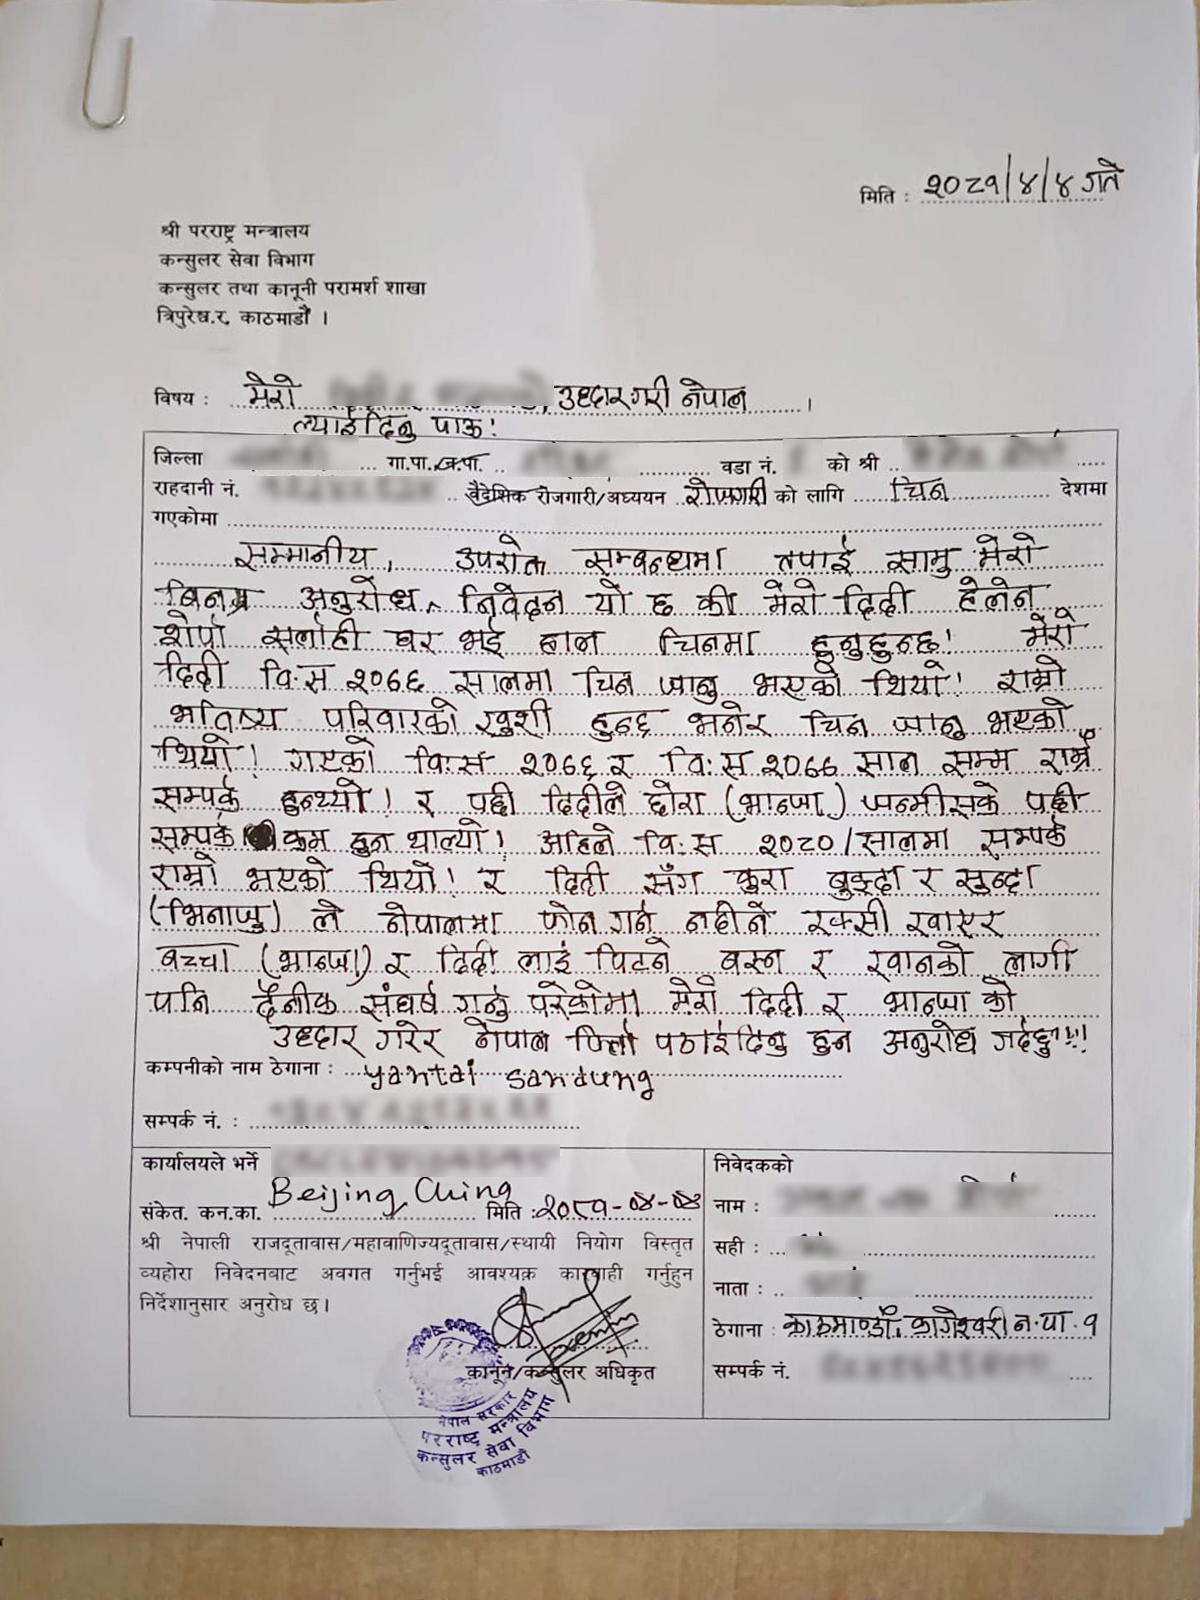 मिति : २०८१/४/४ गते
श्री परराष्ट्र मन्त्रालय
कन्सुलर सेवा विभाग
कन्सुलर तथा कानूनी परामर्श शाखा
त्रिपुरेश्व.र, काठमाडौं ।
विषय : मेरो , उद्दार गरी नेपाल ।
ल्याईदिनु पाऊ!
जिल्ला गा.पा./न.पा. वडा नं. को श्री
राहदानी नं. वैदेशिक रोजगारी/अध्ययन रोजगारी को लागि चिन देशमा
गएकोमा
सम्मानीय, उपरोक्त सम्बन्धमा तपाई सामु मेरो
बिनम्र अनुरोध, निवेदन यो छ की मेरो दिदी हेलेन
शेर्पा सर्लाही घर भई हाल चिनमा हुनुहुन्छ! मेरो
दिदी वि.स २०६६ सालमा चिन जानु भएको थियो! राम्रो
भविष्य परिवारको खुशी हुन्छ भनेर चिन जानु भएको
थियो! गएको वि.स २०६६ र वि:स २०७७ साल सम्म राम्रै
सम्पर्क हुन्थ्यो! र पछी दिदीले छोरा (भान्जा) जन्मीसके पछी
सम्पर्क कम हुन थाल्यो! अहिले वि:स २०८०/सालमा सम्पर्क
राम्रो भएको थियो! र दिदी सँग कुरा बुझ्दा र सुन्दा
(भिनाजु) ले नेपालमा फोन गर्न नदीने रक्सी खाएर
बच्चा (भान्जा) र दिदी लाई पिटने बस्न र खानको लागी
पनि दैनीक संघर्ष गर्नु परेकोमा मेरो दिदी र भान्जा को
उद्दार गरेर नेपाल फिर्ता पठाईदिनु हुन अनुरोध गर्दछु!!!
कम्पनीको नाम ठेगाना : yantai sandung
सम्पर्क नं. :
कार्यालयले भर्ने
Beijing, China
संकेत. कन.का. मिति : २०८१-०४-०४
श्री नेपाली राजदूतावास/महावाणिज्यदूतावास/स्थायी नियोग विस्तृत
व्यहोरा निवेदनबाट अवगत गर्नुभई आवश्यक कारवाही गर्नुहुन
निर्देशानुसार अनुरोध छ।
कानून/कन्सुलर अधिकृत
नेपाल सरकार
परराष्ट्र मन्त्रालय
कन्सुलर सेवा विभाग
काठमाडौं
निवेदकको
नाम :
सही :
नाता :
ठेगाना : काठमाण्डौं, कागेश्वरी न.पा. १
सम्पर्क नं.